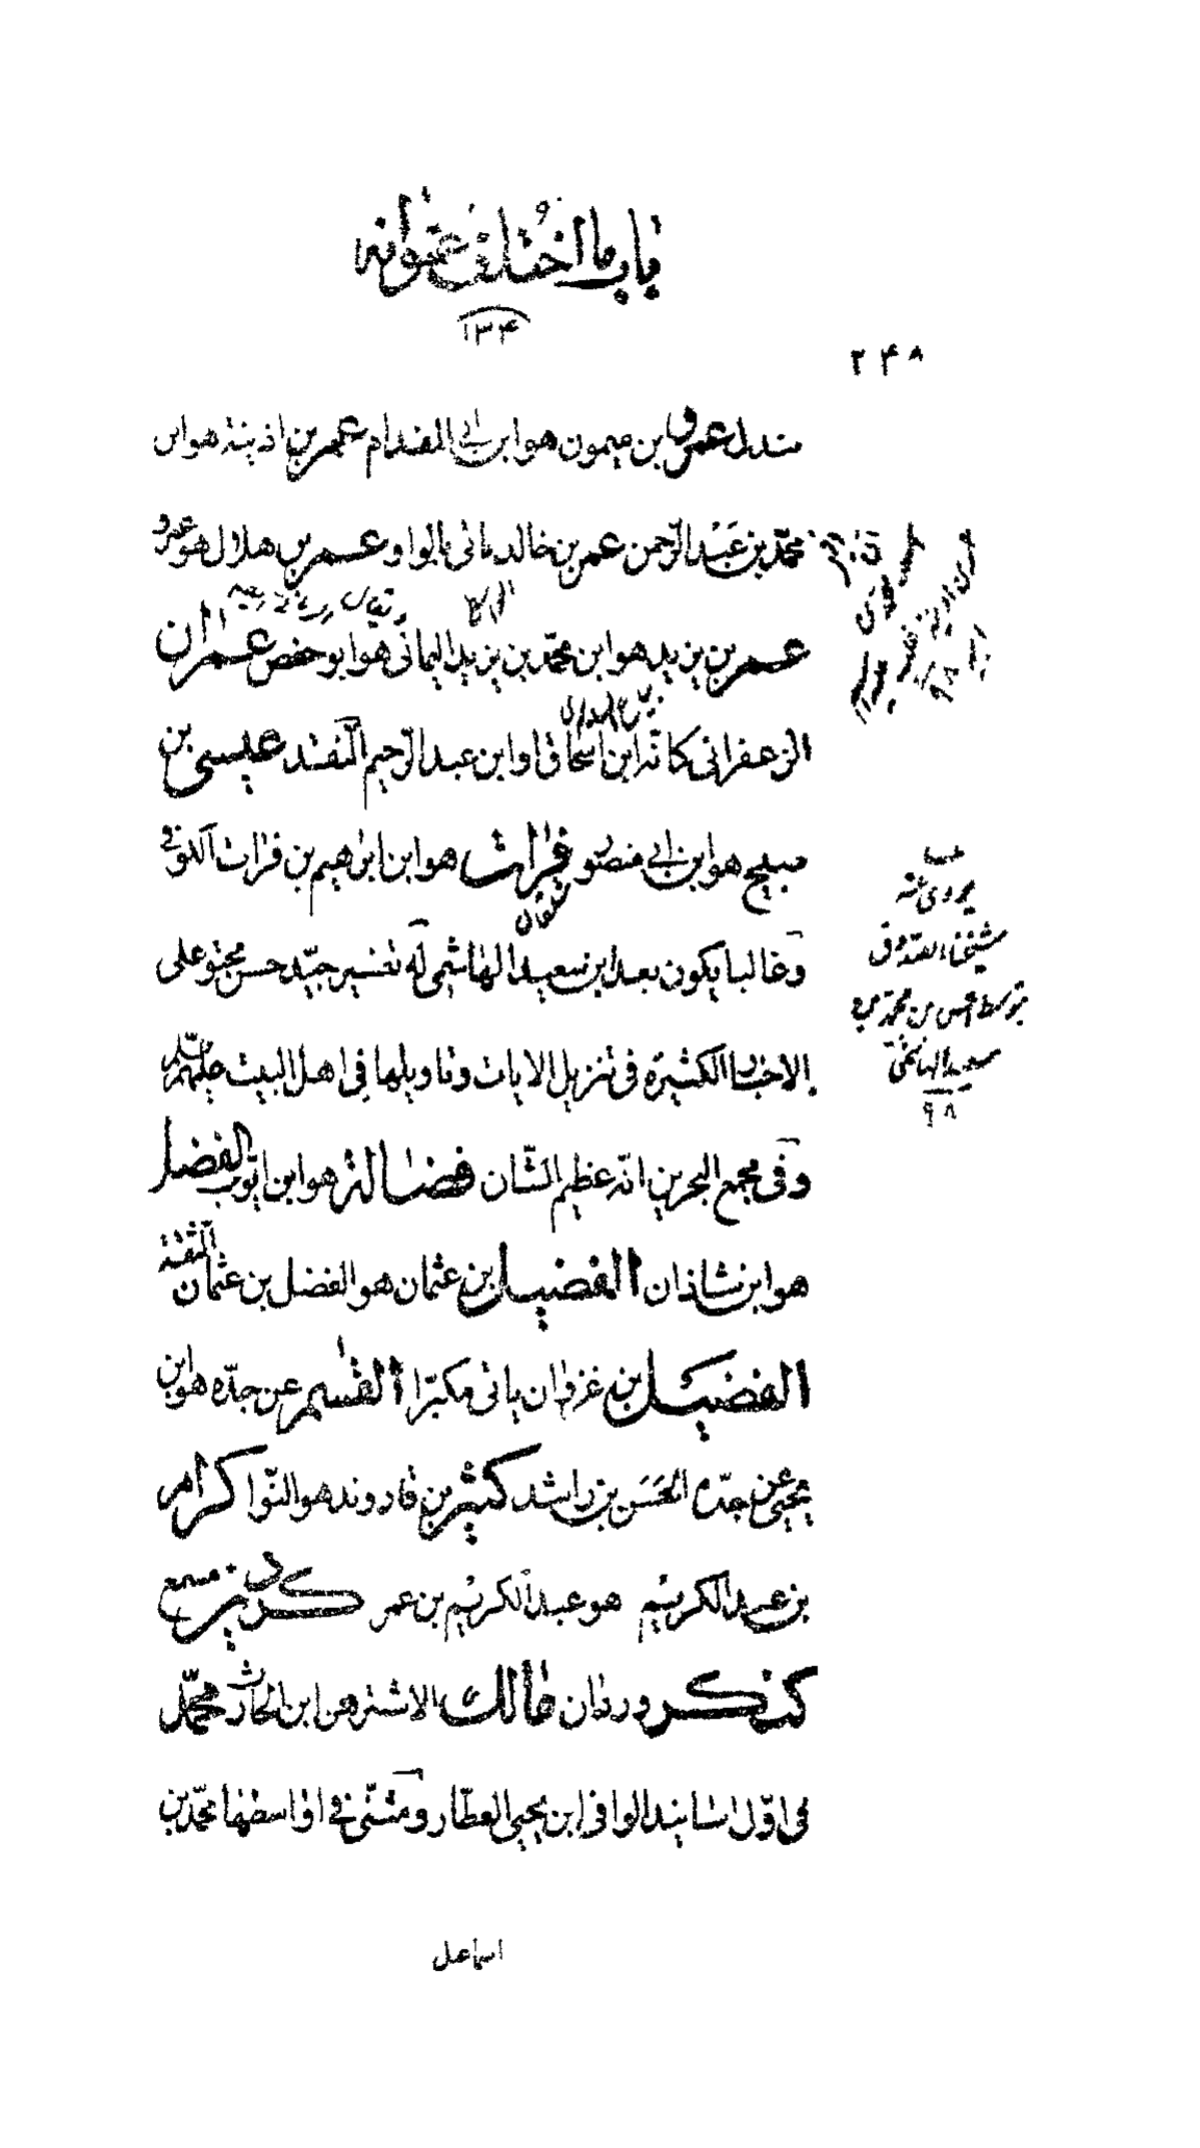 باب ما اختلف عنوانه
١٣۴
٢۴٨
مندل عمرو بن ميمون هو ابن ابى المقدام عمر بن اذينة هو ابن
محمّد بن عَبْد الرّحمن عمر بن خالد ياتى بالواو عمر بن هلال هو عمرو
عمر بن يزيد هو ابن محمّد بن يزيد اليمانى هو ابو حفص عمران
الزعفرانى كانّه ابن اسحاق او ابن عبد الرّحيم الثقة عيسى بن
صبيح هو ابن ابى منصور فرات هو ابن ابراهيم بن فرات الكوفى
وغالبا يكون بعد ابن سعيد الهاشمى له تفسير جيّد حسن محتو على
الاخبار الكثيرة فى تنزيل الايات وتاويلها فى اهل البيت عليهم
وفى مجمع البحرين انّه عظيم الشّان فضالة هو ابن ايّوب الفضل
هو ابن شاذان الفضيل بن عثمان هو الفضل بن عثمان الثقة
الفضيل بن غزوان ياتى مكبّرا القسم عن جدّه هو ابن
يحيى عن جدّه الحَسَن بن راشد كثير بن قاروند هو النّوا كرام
بن عبد الكريم هو عبد الكريم بن عمر كردين مسمع
كنكر وردان مالك الاشتر هو ابن الحارث محمّد
فى اوّل اسانيد الوافى ابن يحيى العطّار ومثنّى فى اواسطها محمّد بن
يروى عنه
شيخنا الصّدوق
بتوسط حسن بن محمّد بن
سعيد الهاشمى
٩٨
اسماعل